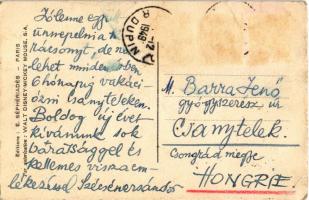 Jólenne egy
ünnepelni a k
rácsonyt, de ne
lehet minden évben
6 hónapig vakáci
ózni Csanyteleken.
Boldog új évet
kívánunk sok
barátsággel és
kellemes visszaem-
lékezéssel
Editions : E. SÉPHÉRIADÈS - PARIS
WALT DISNEY-MICKEY MOUSE, S.A.
DUPIN
1949
M. Barra Jenő
gyógyszerész úr
Csanytelek.
Csongrád megye
HONGRIE.